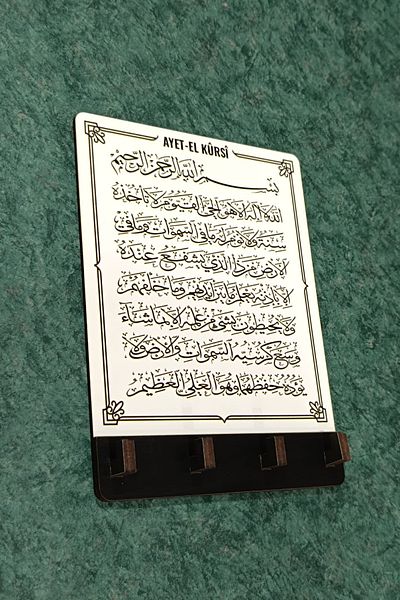 AYET-EL KÜRSİ
بسم الله الرحمن الرحيم
الله لا اله الا هو الحي القيوم لا تاخذه
سنة ولا نوم له ما في السموات وما في
الارض من ذا الذي يشفع عنده
الا باذنه يعلم ما بين ايديهم وما خلفهم
ولا يحيطون بشيء من علمه الا بما شاء
وسع كرسيه السموات والارض ولا
يؤده حفظهما وهو العلي العظيم